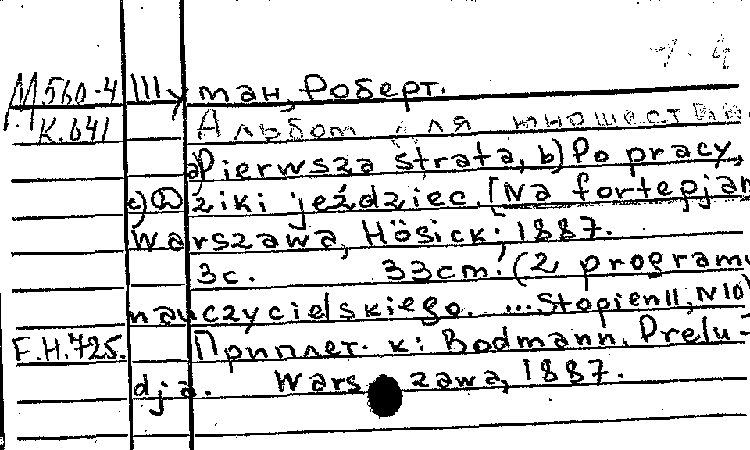 1. 4
М560-4 Шуман, Роберт.
К.641 Альбом для юношества.
a) Pierwsza strata, b) Po pracy,
c) Dziki jeździec. [Na fortepjan
Warszawa, Hösick, 1887.
3c. 33cm. (2, program
nauczycielskiego. ...Stopień II, N10)
Е.Н.725. Приплет. к: Bodmann. Prelu-
dja. Warszawa, 1887.